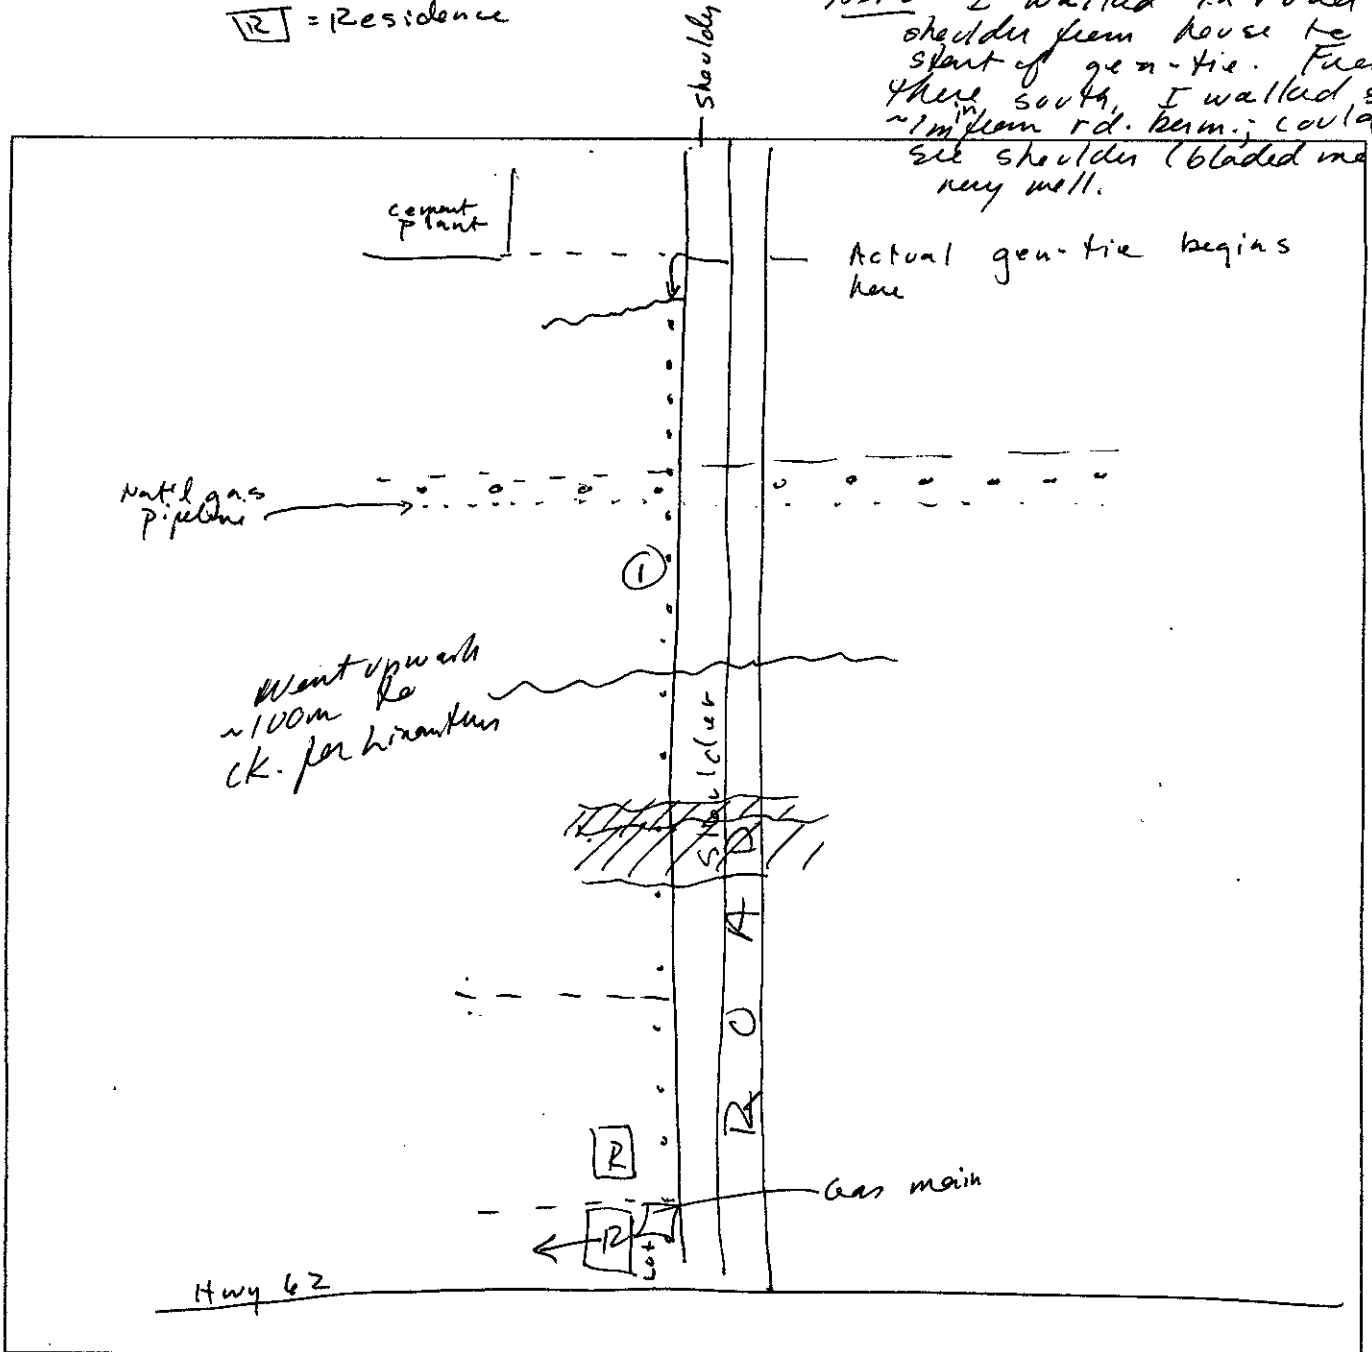 R = Residence
Shoulder
I walked in road
shoulder from house to
start of gen-tie. From
there south, I walked
~1m from rd. berm; could
see shoulder (bladed
very well.
cement
plant
Actual gen-tie begins
here
Nat'l gas
pipeline
1
Went up wash
~100m to
ck. for Linanthus
Shoulder
ROAD
R
Gas main
R
Lot
Hwy 62